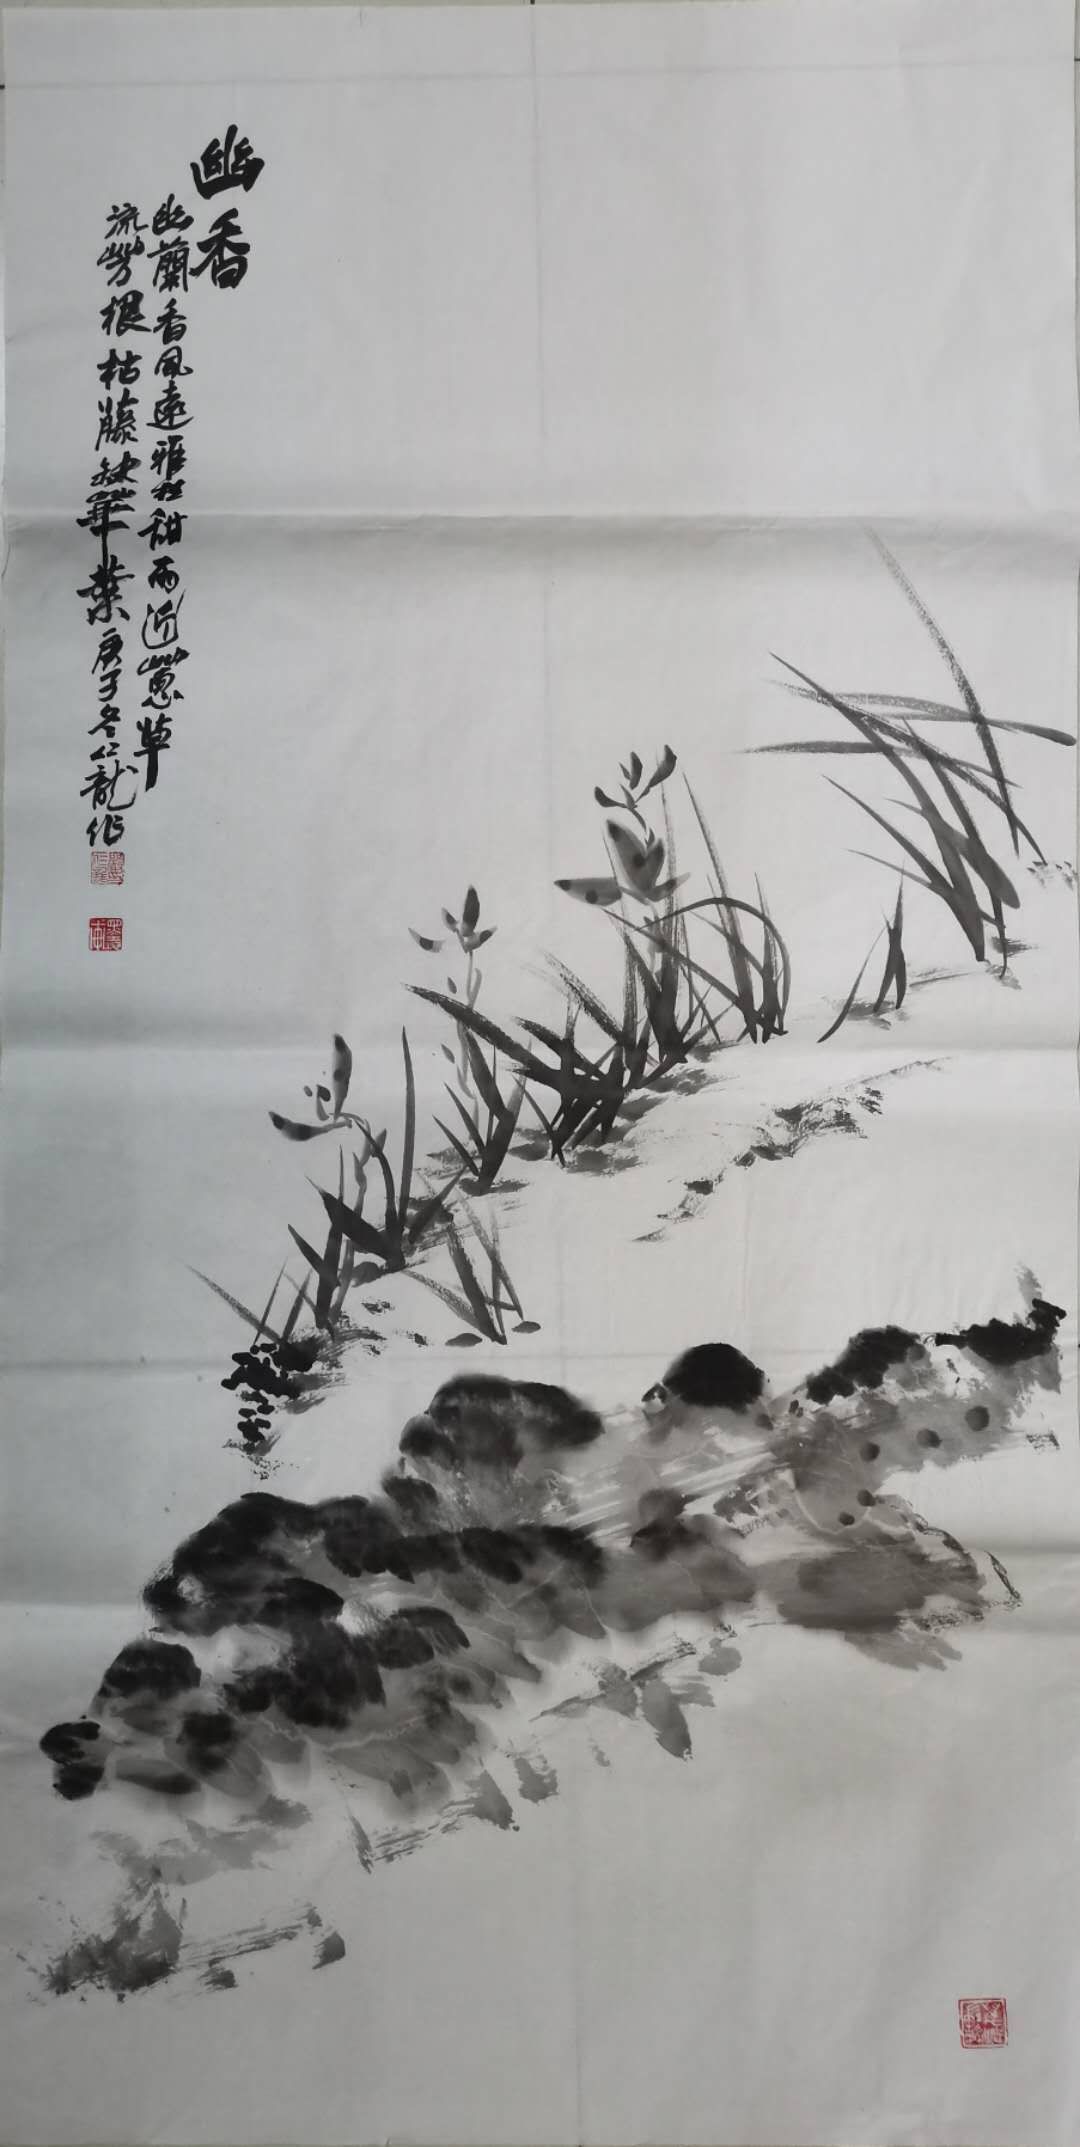 幽香
幽蘭香風遠雅松甜雨近蕙草
流芳根枯藤缺華葉庚子冬仁龍作